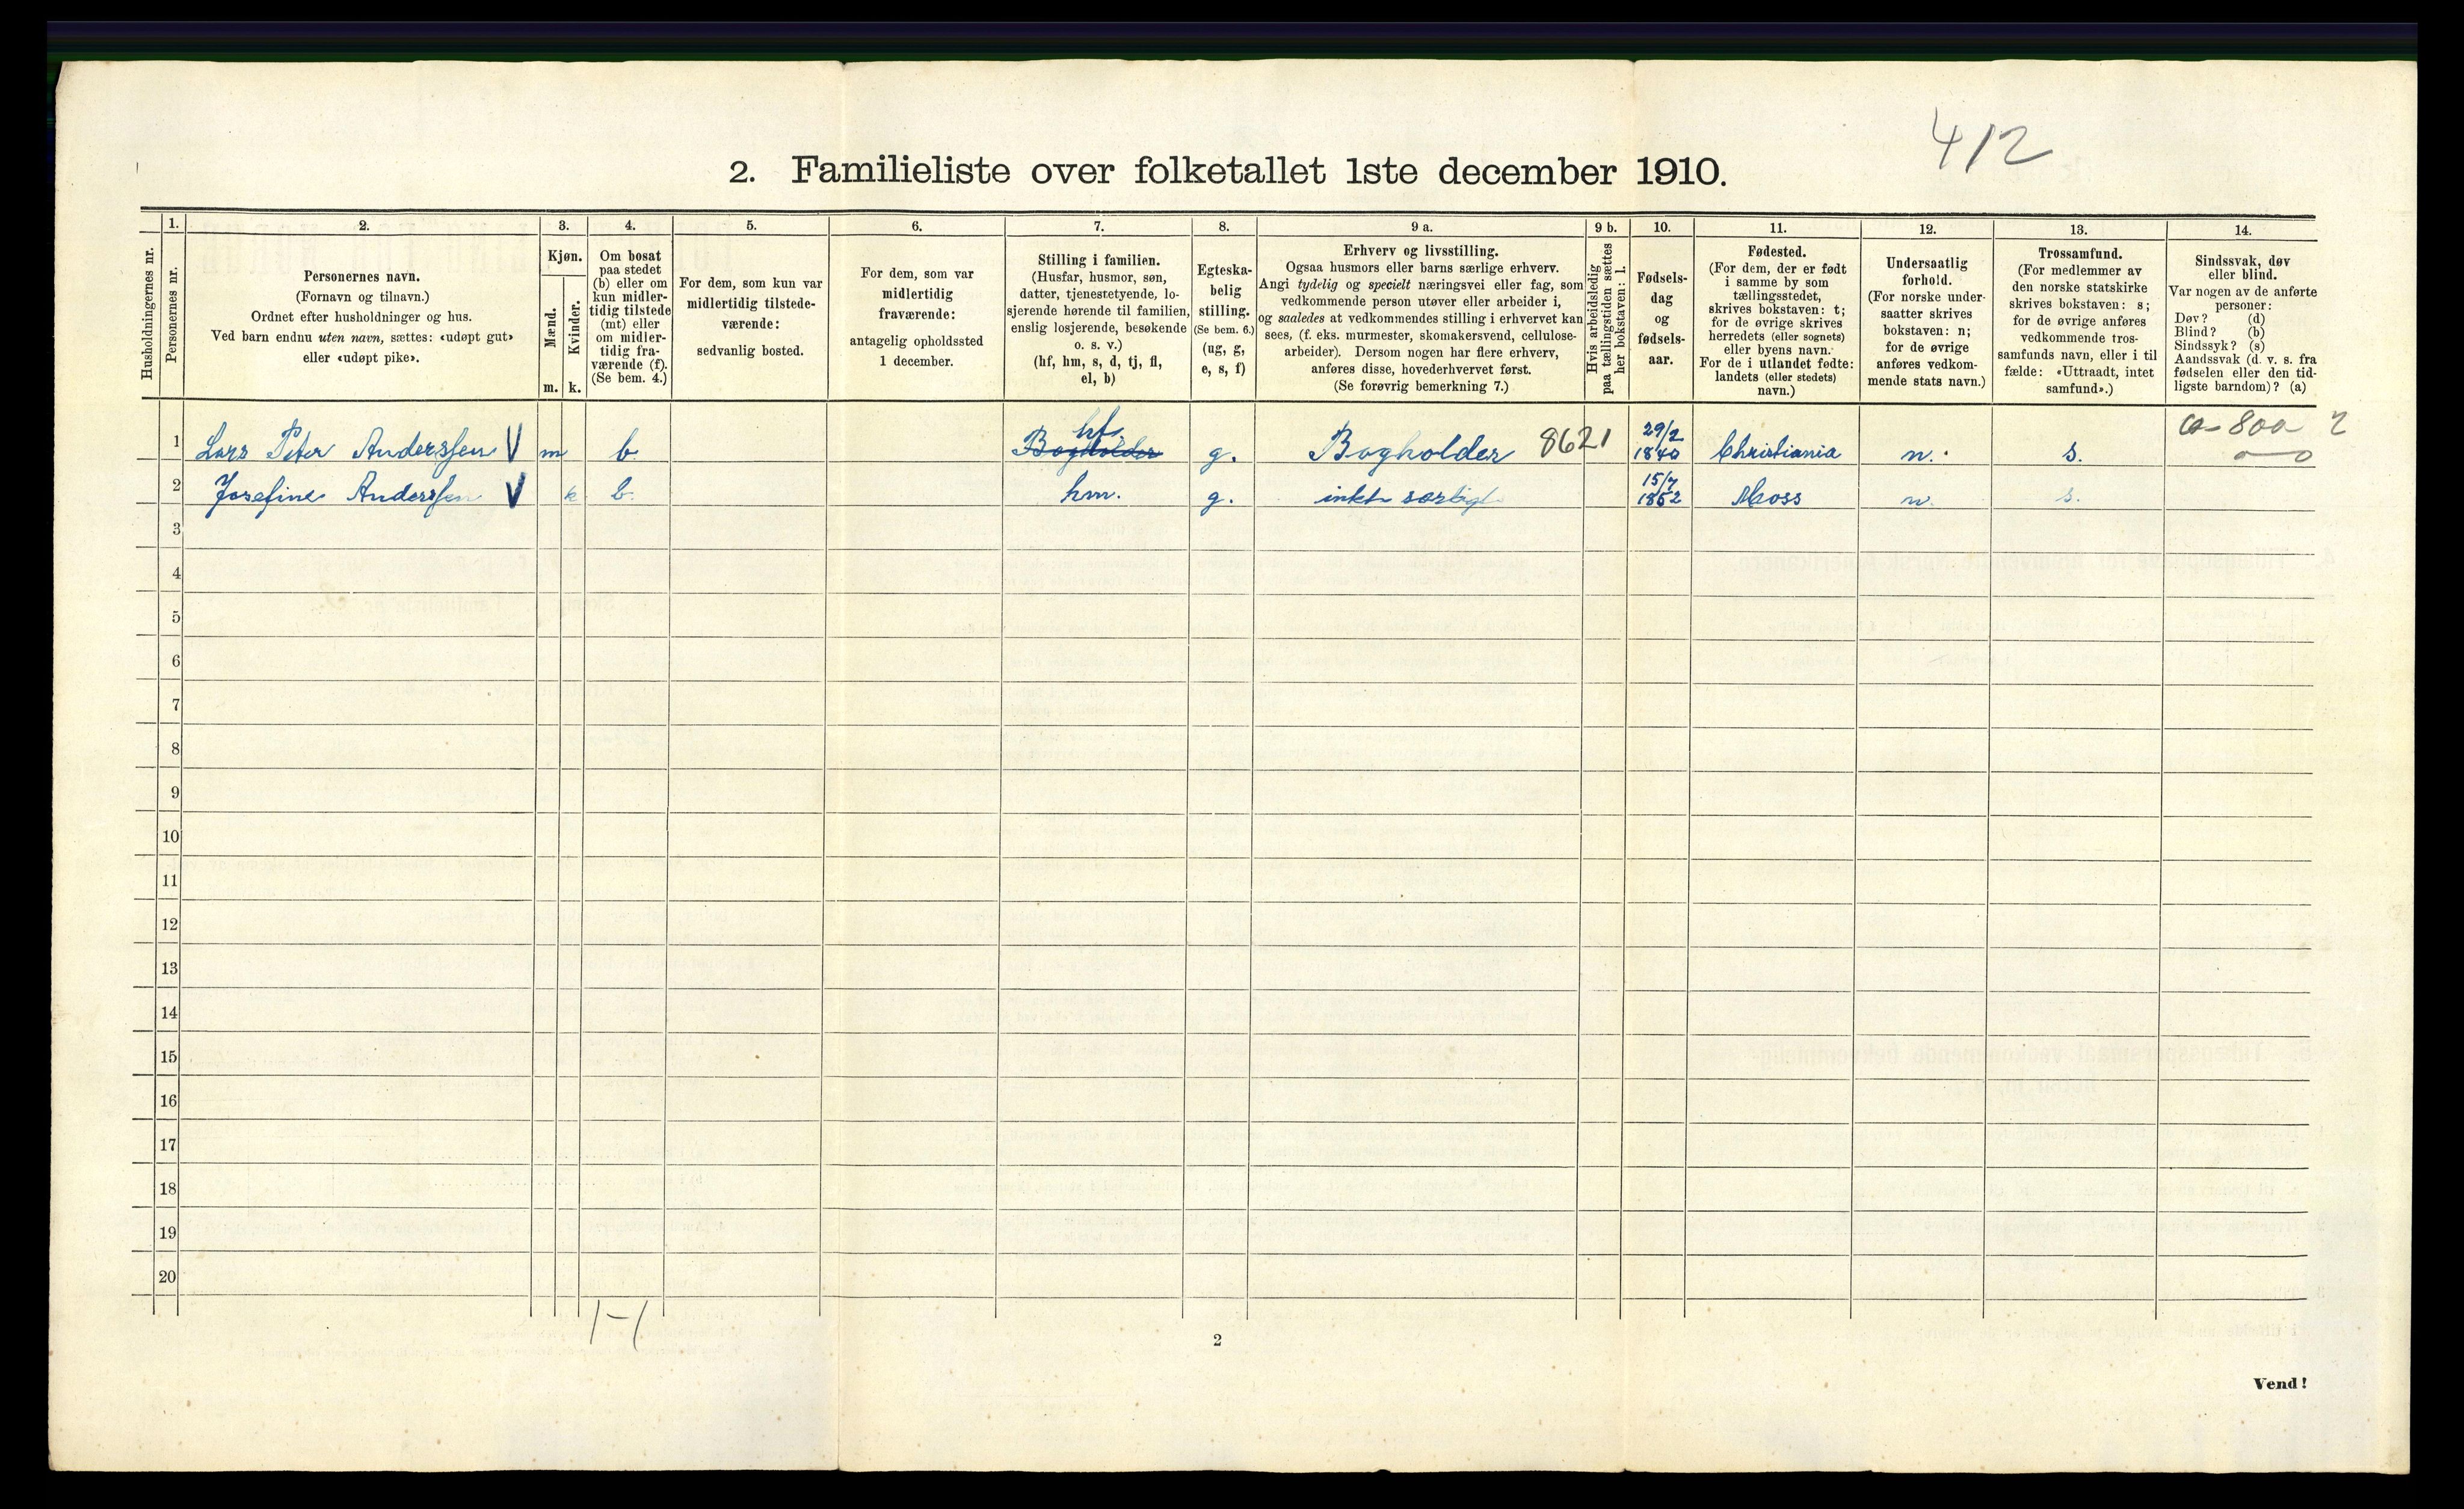 412
2. Familieliste over folketallet 1ste december 1910.
Husholdningernes nr.
1.
Personernes nr.
2.
Personernes navn.
(Fornavn og tilnavn.)
Ordnet efter husholdninger og hus.
Ved barn endnu uten navn, sættes: «udøpt gut»
eller «udøpt pike».
3.
Kjøn.
Mænd.
m.
Kvinder.
k.
4.
Om bosat
paa stedet
(b) eller om
kun midler-
tidig tilstede
(mt) eller
om midler-
tidig fra-
værende (f).
(Se bem. 4.)
5.
For dem, som kun var
midlertidig tilstede-
værende:
sedvanlig bosted.
6.
For dem, som var
midlertidig
fraværende:
antagelig opholdssted
1 december.
7.
Stilling i familien.
(Husfar, husmor, søn,
datter, tjenestetyende, lo-
sjerende hørende til familien,
enslig losjerende, besøkende
o. s. v.)
(hf, hm, s, d, tj, fl,
el, b)
8.
Egteska-
belig
stilling.
(Se bem. 6.)
(ug, g,
e, s, f)
9 a.
Erhverv og livsstilling.
Ogsaa husmors eller barns særlige erhverv.
Angi tydelig og specielt næringsvei eller fag, som
vedkommende person utøver eller arbeider i,
og saaledes at vedkommendes stilling i erhvervet kan
sees, (f. eks. murmester, skomakersvend, cellulose-
arbeider). Dersom nogen har flere erhverv,
anføres disse, hovederhvervet først.
(Se forøvrig bemerkning 7.)
9 b.
Hvis arbeidsledig
paa tællingstiden sættes
her bokstaven: l.
10.
Fødsels-
dag
og
fødsels-
aar.
11.
Fødested.
(For dem, der er født
i samme by som
tællingsstedet,
skrives bokstaven: t;
for de øvrige skrives
herredets (eller sognets)
eller byens navn.
For de i utlandet fødte:
landets (eller stedets)
navn.)
12.
Undersaatlig
forhold.
(For norske under-
saatter skrives
bokstaven: n;
for de øvrige
anføres vedkom-
mende stats navn.)
13.
Trossamfund.
(For medlemmer av
den norske statskirke
skrives bokstaven: s;
for de øvrige anføres
vedkommende tros-
samfunds navn, eller i til
fælde: «Uttraadt, intet
samfund».)
14.
Sindssvak, døv
eller blind.
Var nogen av de anførte
personer:
Døv? (d)
Blind? (b)
Sindssyk? (s)
Aandssvak (d. v. s. fra
fødselen eller den tid-
ligste barndom)? (a)
1 Lars Peter Anderssen V m b Bogholder hf. g. Bogholder 8621 29/2 1840 Christiania n. s. 800 2
0 0
2 Josefine Anderssen V k b. hm. g. inkt særligt 15/7 1852 Moss n. s.
3
4
5
6
7
8
9
10
11
12
13
14
15
16
17
18
19
20
1-1
2
Vend!